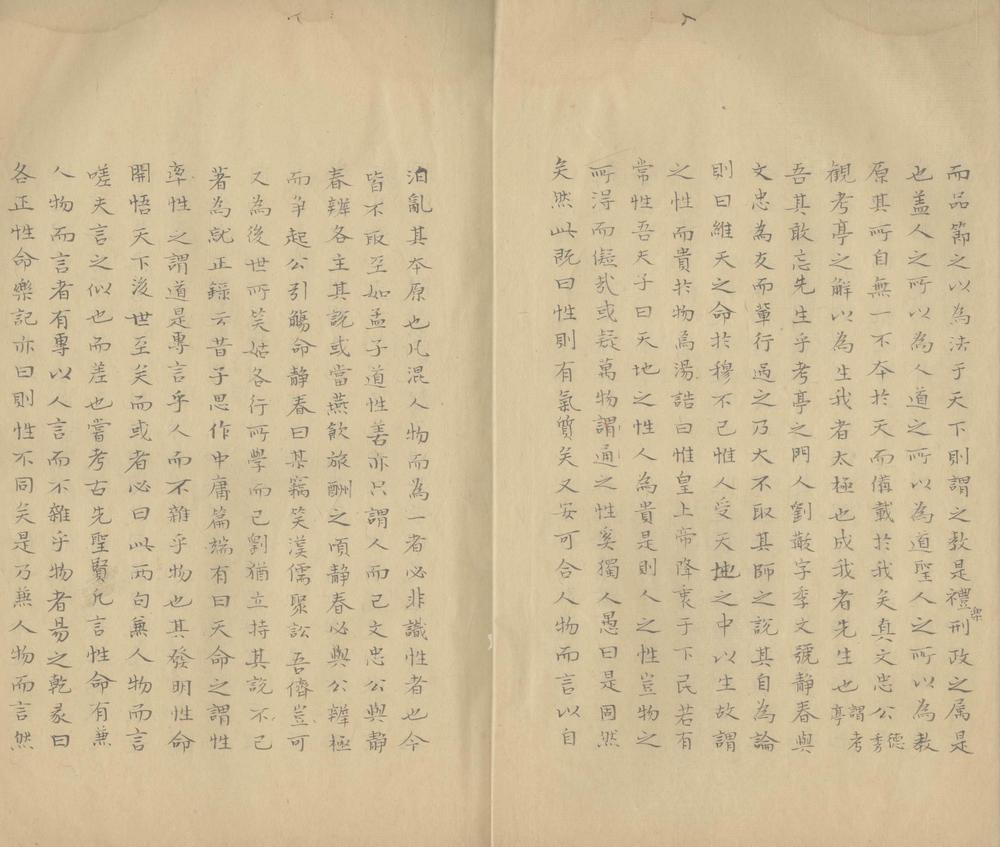 而品節之以為法于天下則謂之教是禮樂刑政之属是
也盖人之所以為人道之所以為道聖人之所以為教
原其所自無一不夲於天而備載於我矣真文忠公德秀
觀考亭之解以為生我者太極也成我者先生也謂考亭
吾其敢忘先生乎考亭之門人劉黻字季文號静春與
文忠為友而輩行過之乃大不取其師之說其自為論
則曰維天之命於穆不已惟人受天地之中以生故謂
之性而貴扵物焉湯誥曰惟皇上帝降衷于下民若有
常性吾夫子曰天地之性人為貴是則人之性豈物之
所得而儗㦲或疑萬物謂通之性奚獨人愚曰是固然
矣然此既曰性則有氣質矣又安可合人物而言以自
汨亂其夲原也凡混人物而為一者必非識性者也今
皆不取至如孟子道性善亦只謂人而已文忠公與静
春辨各主其說或當燕飲旅酬之頃静春必與公辨極
而争起公引觴命静春曰某竊笑漢儒聚訟吾儕豈可
又為後世所笑姑各行所學而已劉猶立持其說不已
著為就正録云昔子思作中庸篇端有曰天命之謂性
率性之謂道是專言乎人而不雜乎物也其發明性命
開悟天下後世至矣而或者必曰此两句兼人物而言
嗟夫言之似也而差也嘗考古先聖賢凢言性命有兼
人物而言者有專以人言而不雜乎物者易之乾彖曰
各正性命樂記亦曰則性不同矣是乃兼人物而言然